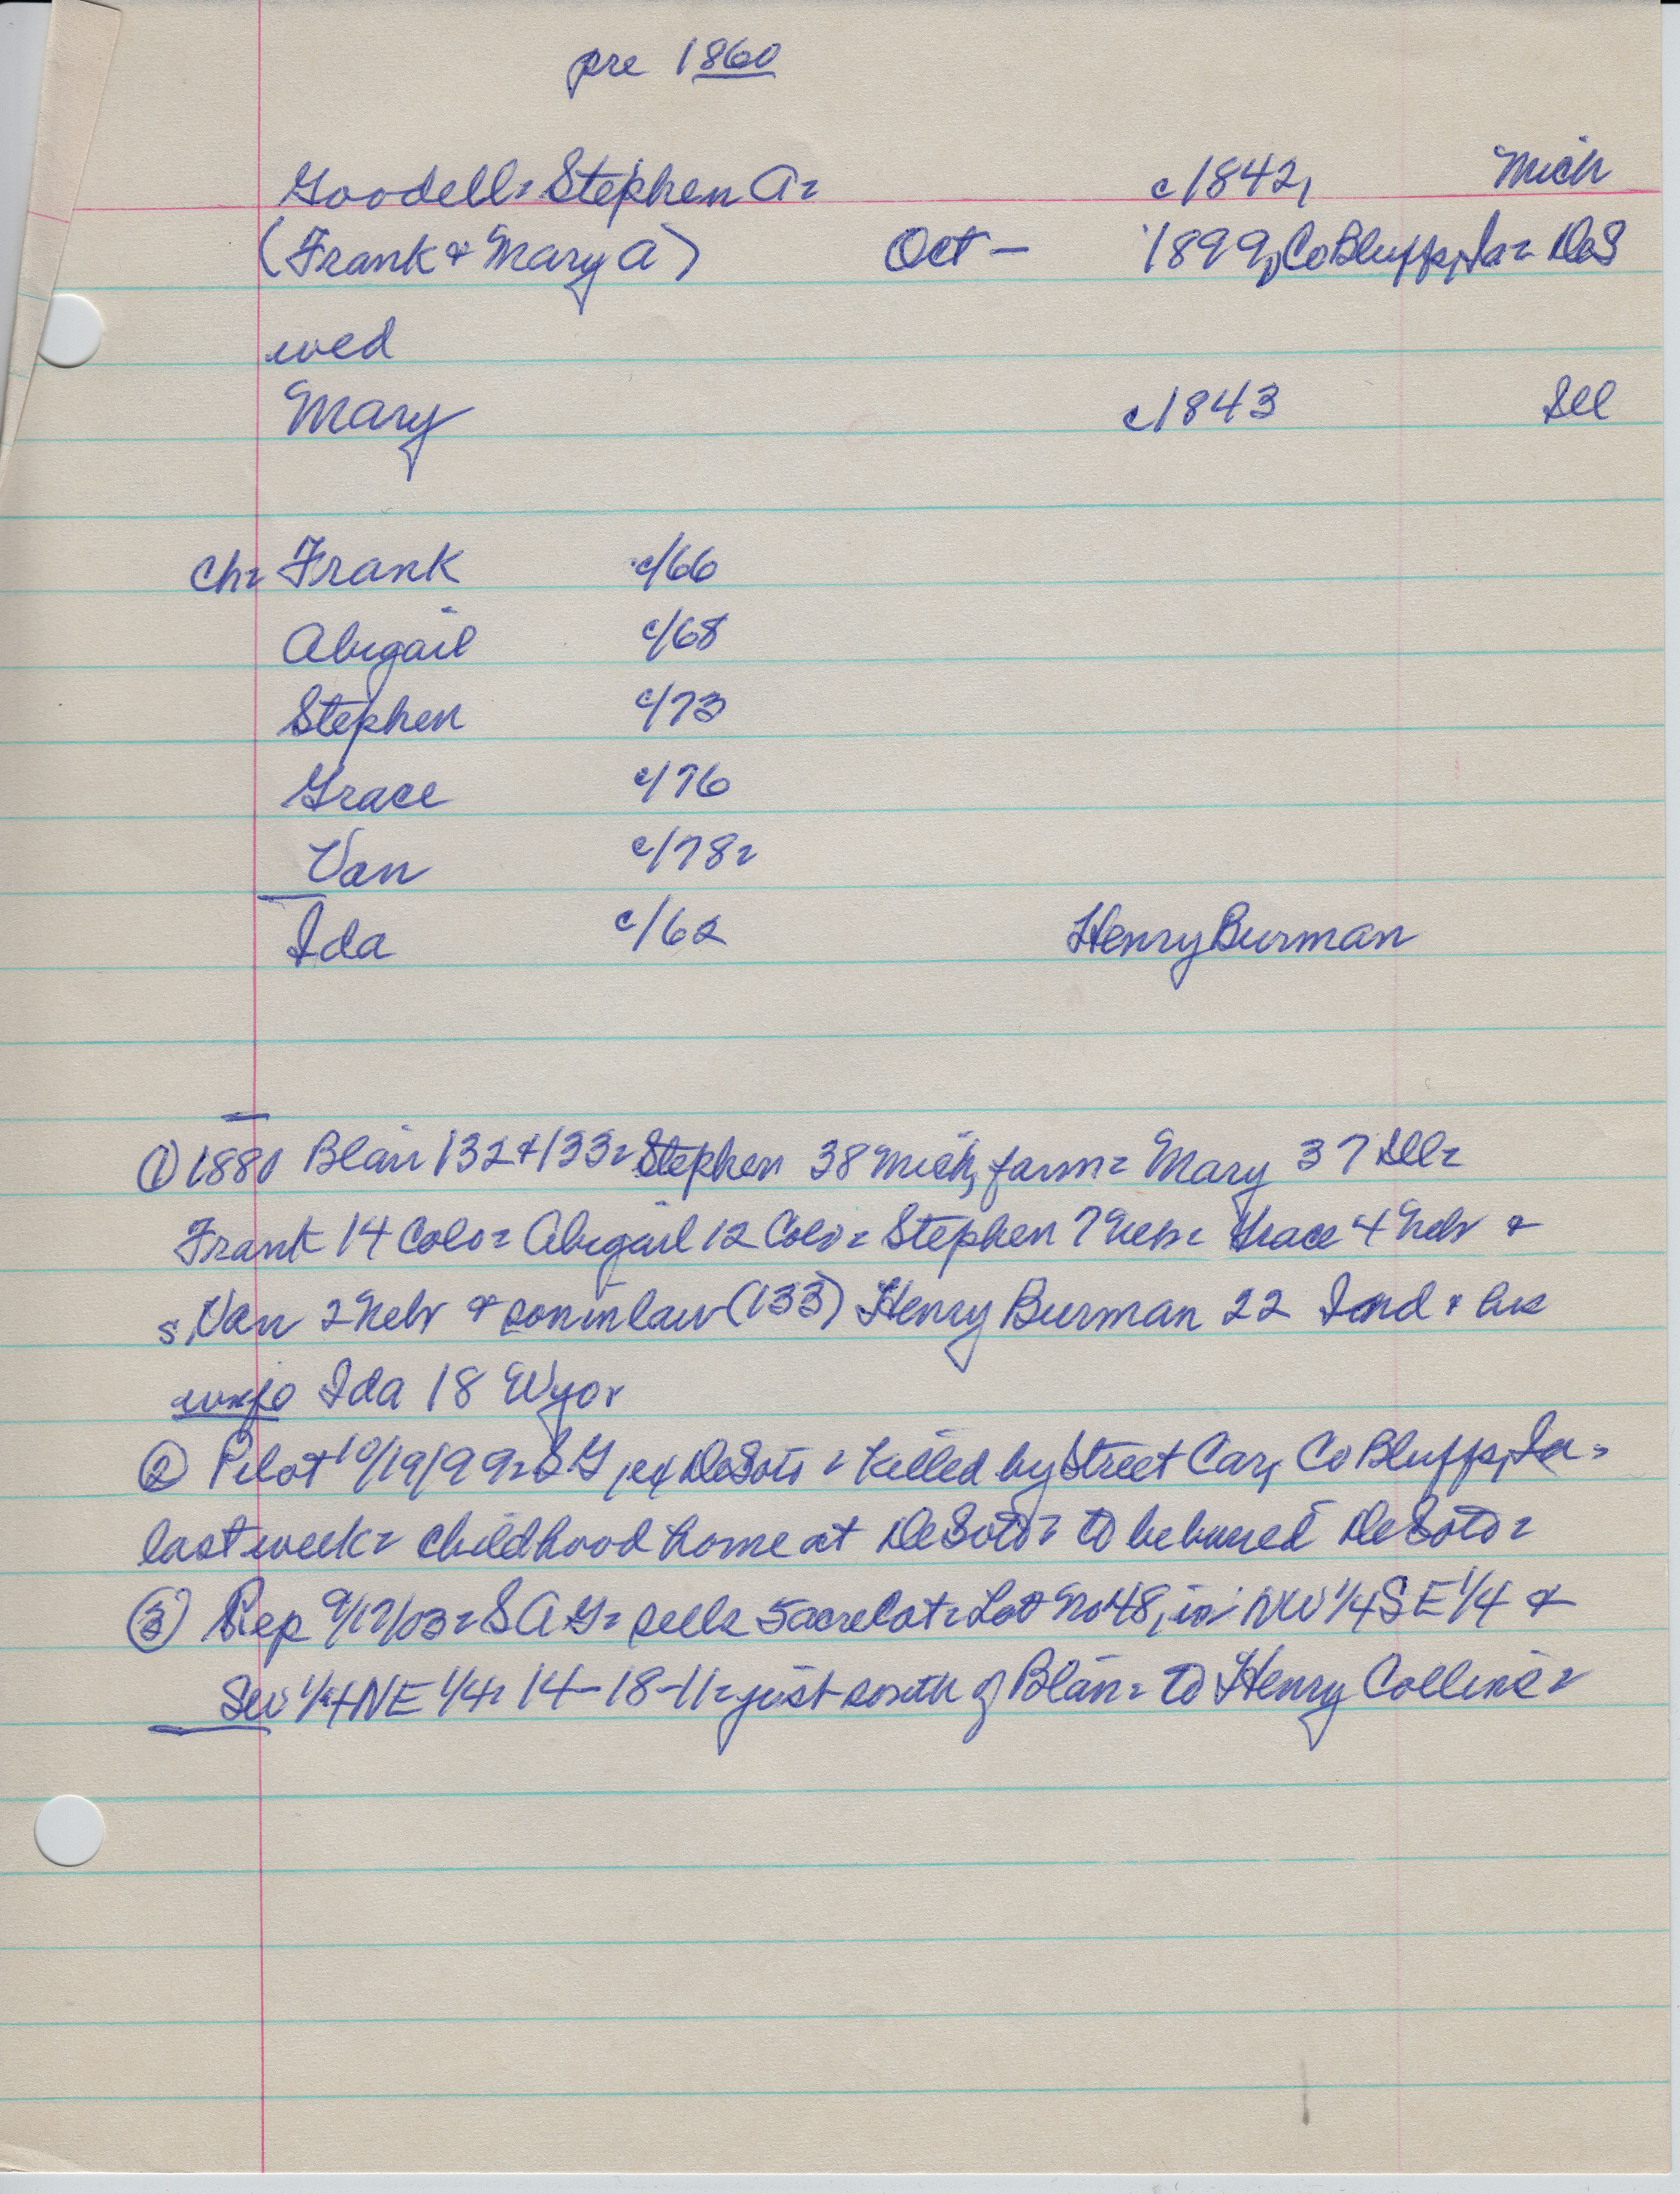 pre 1860
Goodell= Stephen A= c1842, Mich
(Frank & Mary A) Oct - 1899, Co Bluffs, Ia= DeS
wed
Mary c1843 Ill
Ch= Frank c/66
Abigail c/68
Stephen c/73
Grace c/76
Van c/78=
Ida c/62 Henry Burman
① 1880 Blair 132+133= Stephen 38 Mich, farm= Mary 37 Ill=
Frank 14 Colo= Abigail 12 Colo= Stephen 7 Neb= Grace 4 Nebr &
s Van 2 Nebr & soninlaw (133) Henry Burman 22 Ind & his
wife Ida 18 Wyo=
② Pilot 10/19/99= SG, ex DeSoto= killed by Street Car, Co Bluffs, Ia=
last week= childhood home at DeSoto= to be buried DeSoto=
③ Rep 9/17/03= S A G= sells 5 acre lot= Lot No 48, in NW 1/4 SE 1/4 &
SW 1/4 NE 1/4= 14-18-11= just south of Blair= to Henry Collins=